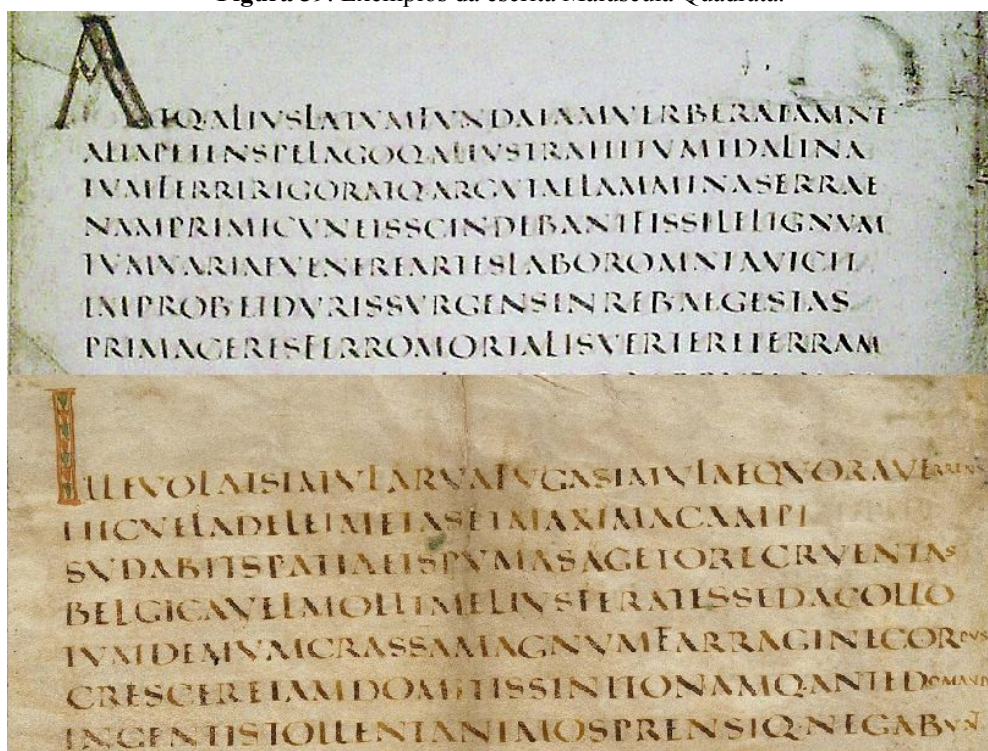 Figura 39: Exemplos da escrita Maiúscula Quadrata.
ATQALIVSLATVMFVNDAIAMVERBERATAMNE
ALTAPETENSPELAGOQALIVSTRAHITVMIDALINA
TVMFERRIRIGORATQARGVTAELAMMINASERRAE
NAMPRIMICVNEISSCINDEBANTFISSILELIGNVM
TVMVARIAEVENEREARTESLABOROMNIAVICIT
IMPROBETDVRISSVRGENSINREBAEGESTAS
PRIMACERESFERROMORTALISVERTERETERRAM
ILLEVOLATSIMVLARVAFVGASIMVLAEQVORAVERRENS
HICVELADELEIMETASETMAXIMACAMPI
SVDABITSPATIAETSPVMASAGETORECRVENTAS
BELGICAVELMOLLIMELIVSFERATESSEDACOLLO
TVMDEMVMCRASSAMAGNVMFARRAGINECORPVS
CRESCEREIAMDOMITISSINITONAMQANTEDOMAND
INGENTISTOLLENTANIMOSPRENSIQNEGABVNT